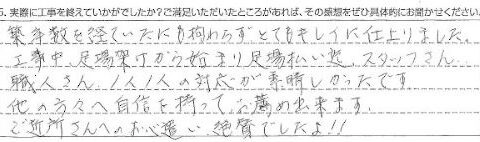 5. 実際に工事を終えていかがでしたか?ご満足いただいたところがあれば、その感想をぜひ具体的にお聞かせください。
築年数を経ていたにも拘わらずとてもキレイに仕上りました。
工事中、足場架けから始まり足場払い迄、スタッフさん、
職人さん、1人1人の対応が素晴しかったです。
他の方々へ自信を持って、お薦め出来ます。
ご近所さんへのお心遣い、絶賛でしたよ!!